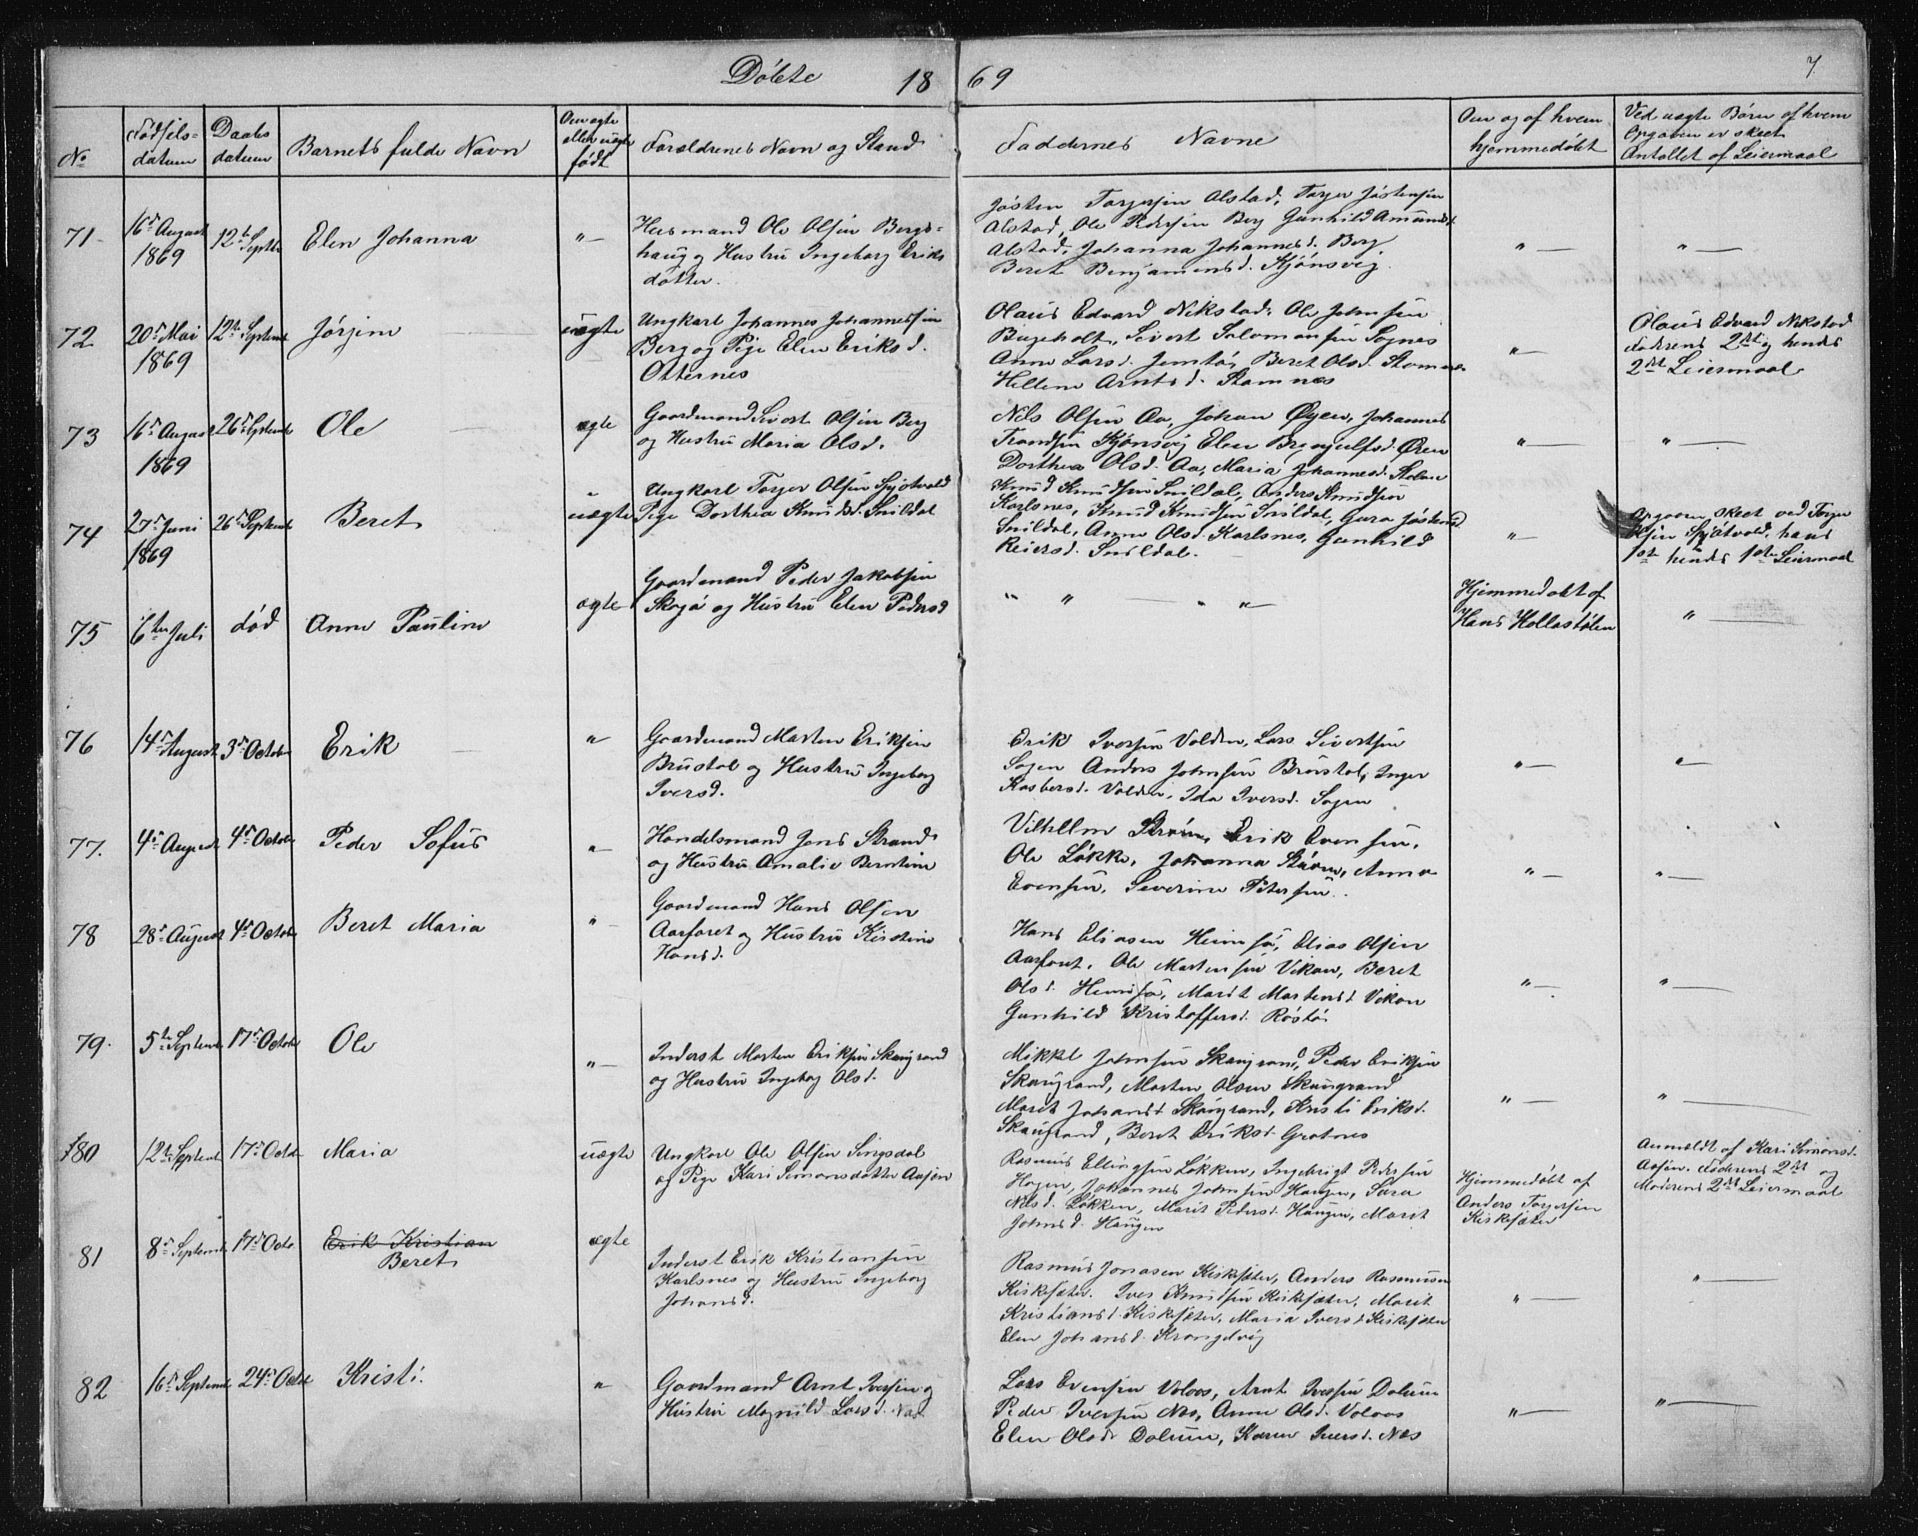 Döbte 1869
7.
No
Fødsels-
datum
Daabs
datum
Barnets fulde Navn
Om ægte
eller uægte
født
Forældrenes Navn og Stand
Faddernes Navne
Om og af hvem
hjemmedøbt
Ved uægte Børn af hvem
Opgaven er skeet
Antallet af Leiermaal
71
16de August
1869
12te Septbr
Elen Johanna
"—
Husmand Ole Olsen Bergs-
haug og Hustru Ingeborg Eriks
datter.
Jøsten Torgersen Alstad, Torger Jøstensen
Alstad, Ole Pedersen Berg Gunhild Amundsd
Alstad, Johanna Johannesd. Berg
Beret Benjaminsd. Kjønsvig
"—
"—
72
20de Mai
1869
12te Septemb
Jørgine
uægte
Ungkarl Johannes Johannessen
Berg og Pige Elen Eriksd.
Otternes
Olaus Edvard Nikstad, Ole Johnsen
Sivert Salomonsen Sognes
Anne Larsd. Jemtø, Beret Olsd. Stamnes
Hellene Arntsd. Stamnes
"—
Olaus Edvard Nikstad
Faderens 2det og hendes
2det Leiermaal
73
16de August
1869
26de Septemb
Ole
ægte
Gaardmand Sivert Olsen Berg
og Hustru Maria Olsd.
Nils Olsen Aa, Johan Øyen, Johannes
Trondsen Kjønsvig Elen Brynjulfsd. Øren
Dorthea Olsd. Aa, Maria Johannesd. Stolan
"—
"—
74
27de Juni
1869
26de Septemb
Beret
uægte
Ungkarl Torger Olsen Spjøtvold
Pige Dorthea Knudsd. Snildal
Knud Knudsen Snildal, Anders Knudsen
Karlsnes, Knud Knudsen Snildal, Gura Jøstensd
Snildal, Anne Olsd. Karlsnes, Gunhild
Reiersd. Snildal.
"—
Opgaven skeet ved Torger
Olsen Spjøtvold, hans
1ste hendes 1ste Leiermaal
75
6te Juli
død
Anne Pauline
ægte
Gaardmand Peder Jakobsen
Skogø og Hustru Elen Pedersd
" " — " "—
Hjemmedøbt af
Hans Hollastølen
"—
76
14de August
3de October
Erik
"
Gaardmand Morten Eriksen
Brustøl og Hustru Ingeborg
Iversd.
Erik Iversen Volden, Lars Sivertsen
Sogen Anders Johnsen Brøstøl, Inger
Kasbersd. Volden, Ida Iversd. Sogen
"—
"—
77.
4de August
4de October
Peder Sofus
"
Handelsmand Jens Strand
og Hustru Amalie Berntine
Vilhelm Strøm, Erik Evensen,
Ole Løkke, Johanna Strøm, Anna
Evensen, Severine Petersen.
"—
"—
78
28de August
4de October
Beret Maria
"
Gaardmand Hans Olsen
Aarforet og Hustru Kirstine
Hansd.
Hans Eliasen Hemsø, Elias Olsen
Aarforet, Ole Mortensen Vikan, Beret
Olsd. Hemsø, Marit Mortensd Vikan
Gunhild Kristoffersd. Røstø
"—
"—
79.
5te Septemb
17de Octob
Ole
"—
Inderst Morten Eriksen Skaugrand
og Hustru Ingeborg Olsd.
Mikkel Johnsen Skaugrand, Peder Eriksen
Skaugrand, Morten Olsen Skaugrand
Marit Johansd Skaugrand, Kristi Eriksd.
Skaugrand, Beret Eriksd. Grotnes
"—
"—
80
12te Septemb
17de Octob
Maria
uægte
Ungkarl Ole Olsen Singsdal
og Pige Kari Simonsdatter Aasen
Rasmus Ellingsen Løkken, Ingebrigt Pedersen
Hagen, Johannes Johnsen Haugen, Sara
Nilsd. Løkken, Marit Pedersd. Haugen, Marit
Johnsd. Haugen
Hjemmedøbt af
Anders Torgersen
Kirksæter
Anmeldt af Kari Simonsd.
Aasen. Faderens 2det og
Moderens 2det Leiermaal
81
8de Septemb
17de Octo
Erik Kristian
Beret
ægte
Inderst Erik Kristiansen
Karlsnes og Hustru Ingeborg
Johansd.
Rasmus Jonasen Kirksæter, Anders Rasmusen
Kirksæter, Iver Knudsen Kirksæter, Marit
Kristiansd. Kirksæter, Maria Iversd Kirksæter
Elen Johansd. Krongelvig
"—
"—
82
16de Septemb
24de Octob
Kristi.
"
Gaardmand Arnt Iversen og
Hustru Magnild Larsd. Næs
Lars Evensen Voloos, Arnt Iversen Dolum
Peder Iversen Næs, Anne Olsd. Voloos
Elen Olsd Dolum, Karen Iversd. Næs
"—
"—